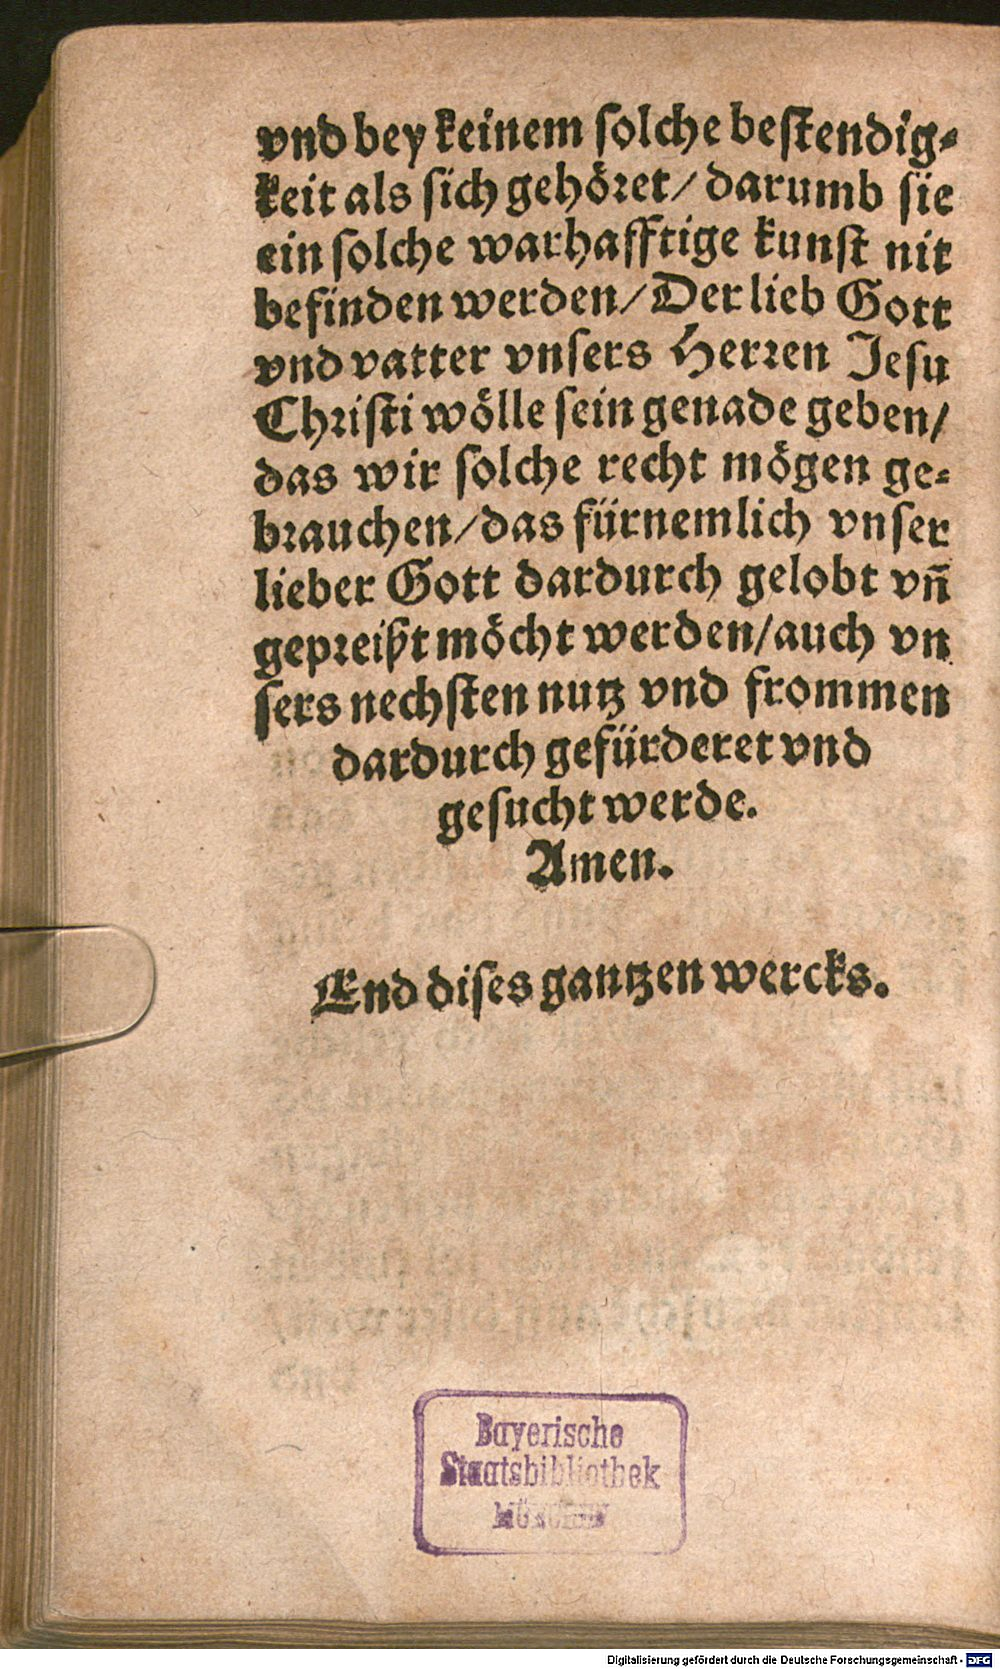 vnd bey keinem solche bestendig⸗
keit als sich gehöret/ darumb sie
ein solche warhafftige kunst nit
befinden werden/ Der lieb Gott
vnd vatter vnsers Herren Jesu
Christi wölle sein genade geben/
das wir solche recht mögen ge⸗
brauchen/ das fürnemlich vnser
lieber Gott dardurch gelobt vñ
gepreißt möcht werden/ auch vn
sers nechsten nutz vnd frommen
dardurch gefürderet vnd
gesucht werde.
Amen.
End dises gantzen wercks.
Bayerische
Staatsbibliothek
MÜNCHEN
Digitalisierung gefördert durch die Deutsche Forschungsgemeinschaft - DFG